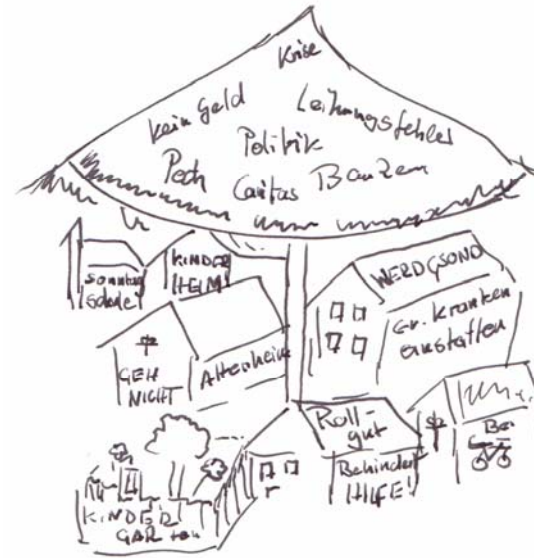 Krise
kein Geld
Leitungsfehler
Politik
Pech
Caritas Bauzem
Sonntag
Schule
KINDER
HEIM!
WERDGSOND
Ev. Kranken
anstalten
GEH
NICHT
Altenheim
Roll-
gut
Behindert
HILFE!
Be
KINDER
GARten